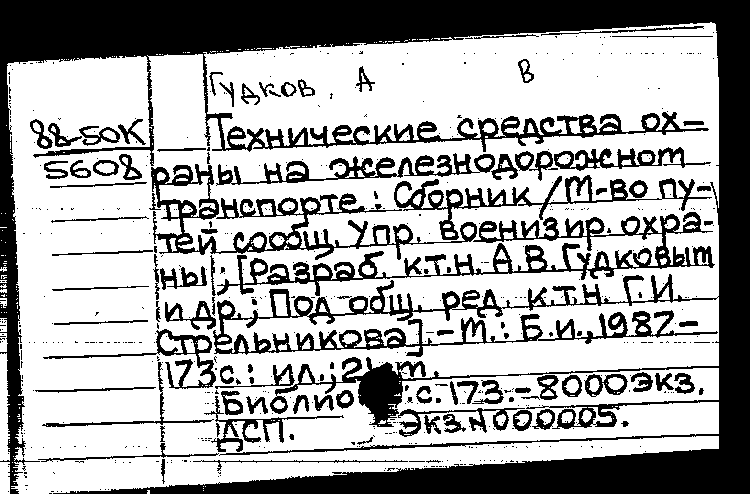 Гудков, А В
88-50К
5608
Технические средства ох-
раны на железнодорожном
транспорте.: Сборник / М-во пу-
тей сообщ. Упр. военизир. охра-
ны ; [Разраб. к.т.н. А.В.Гудковым
и др.; Под общ. ред. к.т.н. Г.И.
Стрельникова]. - М.: Б.и., 1987. -
173 с.: ил.;
Библио :с. 173. - 8000 экз.
ДСП. Экз.N000005.